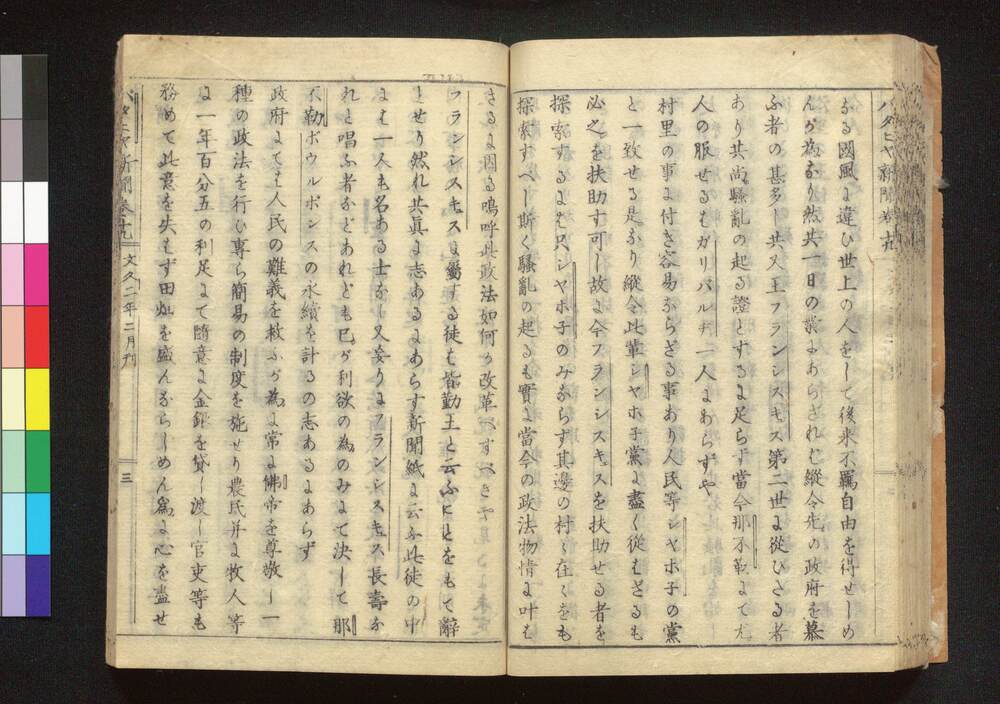 バタヒヤ新聞卷十九
なる國風に違ひ世上の人をして後来不羈自由を得せしめ
んが為なり然共一日の業にあらざれむ縱令先の政府を慕
ふ者の甚多し共又王フランシスキス第二世に従ひざる者
あり共尚騒亂の起る證とするに足らず當今那不勒にて尤
人の服せるむガリバルヂ一人にあらずや
村里の事に付き容易ならざる事あり人民等シヤホ子の黨
と一致せる是なり縱令此輩シヤホ子黨に盡く従むざるも
必之を扶助す可し故に今フランシスキスを扶助せる者を
探索するにも只シヤホ子のみならず其邊の村々在々をも
探索すべし斯く騒亂の起るも實に當今の政法物情に叶む
さるに因る嗚呼此政法如何か改革すべき
フランシスキスに屬する徒も皆勤王と云ふことをもて辭
とせり然れ共真に志あるにあらす新聞紙に云ふ此徒の中
にも一人も名ある士なし又妄りにフランシスキス長壽な
れと唱ふ者などあれども已が利欲の為のみにて決して那
不勒ボウルボンスの永續を計るの志あるにあらず
政府にても人民の難義を救ふが為に常に佛帝を尊敬し一
種の政法を行ひ專ら簡易の制度を施せり農民并に牧人等
に一年百分五の利足にて隨意に金銀を貸し渡し官吏等も
務めて此意を失もず田畑を盛んならしめん為に心を盡せ
バタヒヤ新聞卷十九 文久二年二月刊 三